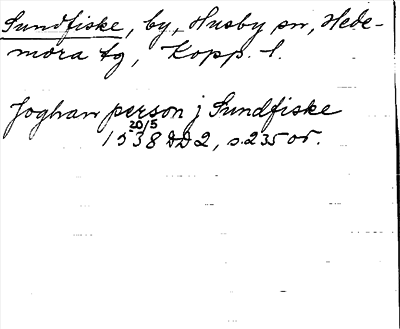 Sundfiske, by, Husby sn, Hede-
mora tg, Kopp. l.
Joghan person j Sundfiske
20/5
1538 DD2, s. 235 or.